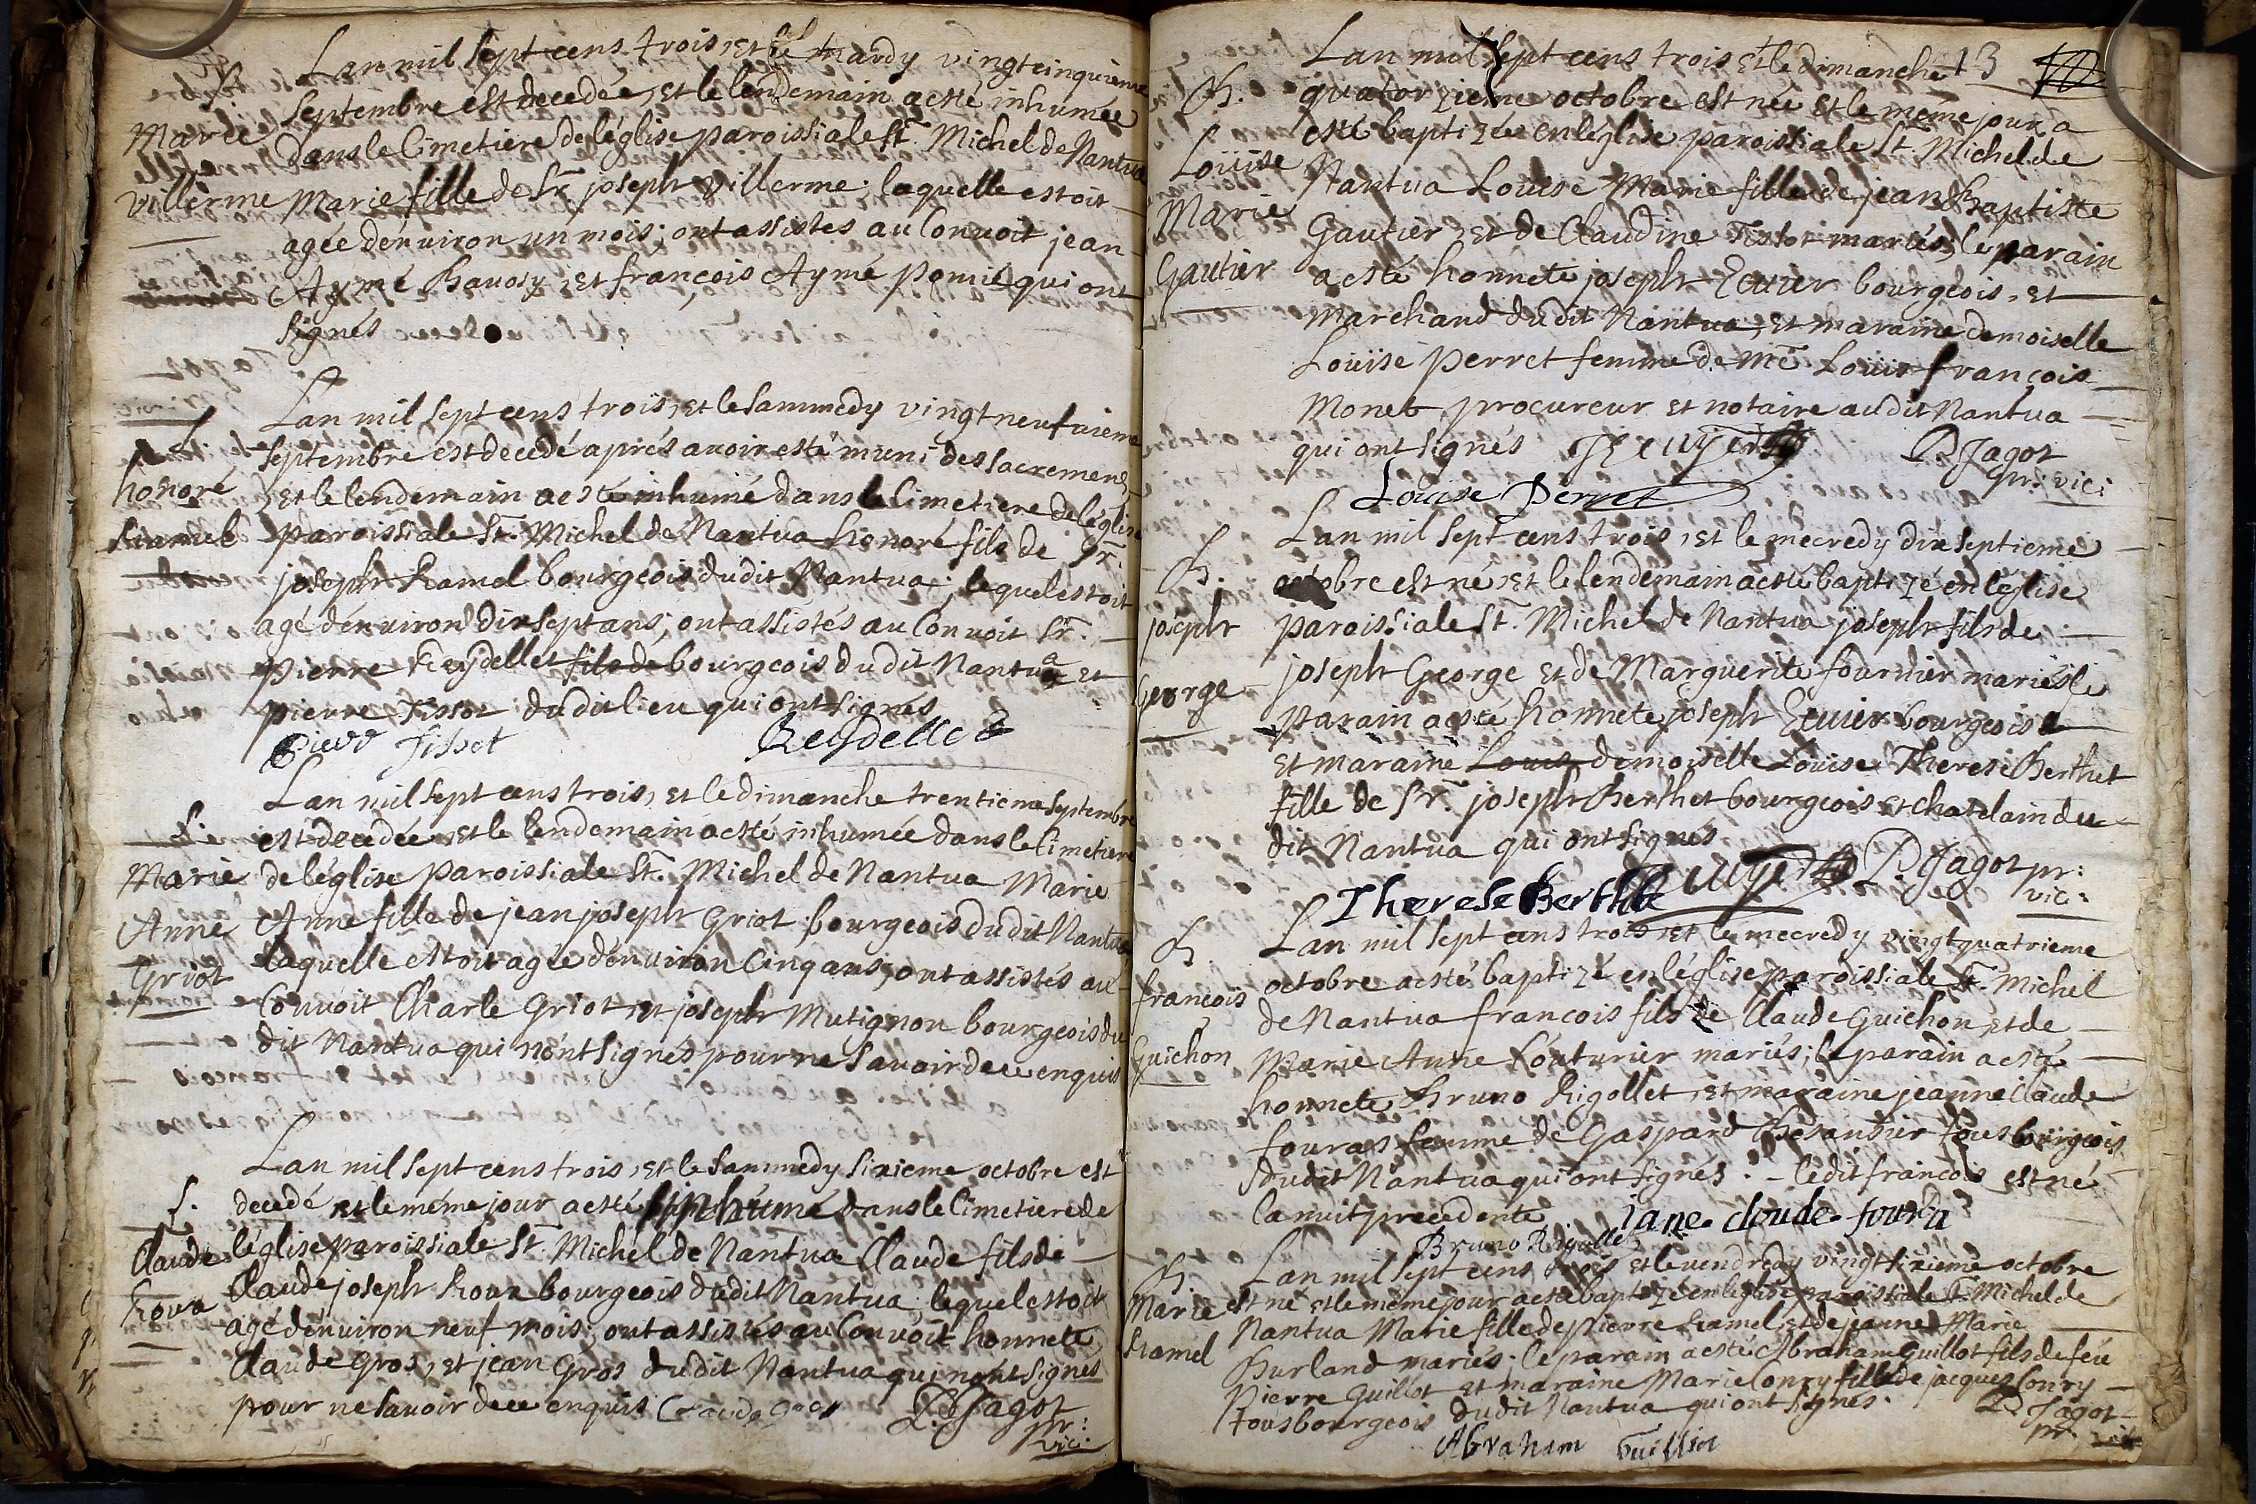 Lan mil sept cens trois, et le mardy vingtcinquieme
septembre est decedée, et le lendemain a esté inhumée
dans le Cimetiere de l'église paroissiale St. Michel de Nantua
Marie
villerme
Marie fille de Sr. joseph Villerme; laquelle estoit
agée dénuiron un mois; ont assistes au Conuoit jean
Aymé Bauosy, et françois Aymé Pomié qui ont
signés
Lan mil sept cens trois, et le sammedy vingtneufuieme
septembre est decedé aprés auoir esté muni des sacremens,
honoré
Ramel
et le lendemain a esté inhumé dans le Cimetiere de l'église
paroissiale St. Michel de Nantua honoré fils de Sr.
joseph Ramel bourgeois dudit Nantua; lequel estoit
agé dénuiron dix sept ans; ont assistés au Conuoit Sr.
pierre Reydellet fils de bourgeois dudit Nantua et
pierre Tissot dudit lieu qui ont signés
Pierr Tissot Reydellet
Lan mil sept cens trois, et le dimanche trentieme septembre
est decedée et le lendemain a esté inhumée dans le Cimetiere
Marie
Anne
Griot
de l'église paroissiale St. Michel de Nantua Marie
Anne fille de jean joseph Griot bourgeois dudit Nantua
laquelle estoit agée dénuiron Cinq ans; ont assistés au
Conuoit Charle Griot, et joseph Mutignon bourgeois du
dit Nantua qui n'ont signés pour ne sauoir de ce enquis
Lan mil sept cens trois, et le sammedy sixieme octobre est
S.
Claude
Roux
decedé et le méme jour a esté inhumé dans le Cimetiere de
l'église paroissiale St. Michel de Nantua Claude fils de
Claude joseph Roux bourgeois dudit Nantua; lequel estoit
agé dénuiron neuf mois; ont assistés au Conuoit honnete
Claude Gros, et jean Gros dudit Nantua qui n'ont signés
pour ne sauoir de ce enquis Claude Gros D. Jagot
pr: vic:
Lan mil sept cens trois et le dimanche 13
B.
Loüise
Marie
Gautier
quatorzieme octobre est née et le méme jour a
esté baptizée en l'église paroissiale St. Michel de
Nantua Louise Marie fille de jean Baptiste
Gautier, et de Claudine Tissot mariés; le parain
a esté honnete joseph Ecuier bourgeois, et
marchand dudit Nantua, et maraine demoiselle
Loüise Perret femme de Me. Loüis françois
Monet procureur et notaire audit Nantua
qui ont signés D. Jagot
pr: vic:
Louise Perret
Lan mil sept cens trois, et le mecredy dix septieme
B.
joseph
George
octobre est né, et le lendemain a esté baptizé en l'église
paroissiale St. Michel de Nantua joseph fils de
joseph George et de Marguerite fournier mariés; le
parain a esté honnete joseph Ecuier bourgeois
et maraine Louise demoiselle Louise Therese Berthet
fille de Sr. joseph Berthet bourgeois et Chatelain du
dit Nantua qui ont signés
Therese Berthet D. Jagot pr:
vic:
Lan mil sept cens trois et le mecredy vingtquatrieme
B.
francois
Guichon
octobre a esté baptizé en l'église paroissiale St. Michel
de Nantua francois fils de Claude Guichon, et de
Marie Anne Couturier mariés; le parain a esté
honnete Bruno Rigollet, et maraine jeanne Claude
fouras femme de Gaspard tous bourgeois
dudit Nantua qui ont signés. - ledit francois est né
la nuit precedente jane. cloude. foura
Bruno Rigollet
Lan mil sept cens trois et le vendredy vingtsixieme octobre
B.
Marie
Ramel
est né et le méme jour a esté baptizé en l'église paroissiale St. Michel de
Nantua Marie fille de pierre Ramel et de jeanne Marie
Burland mariés; le parain a esté Abraham Guillot fils de feü
Pierre Guillot et maraine Marie Conry fille de jacques Conry
tous bourgeois dudit Nantua qui ont signés. D. Jagot
Abraham Guilliot pr: